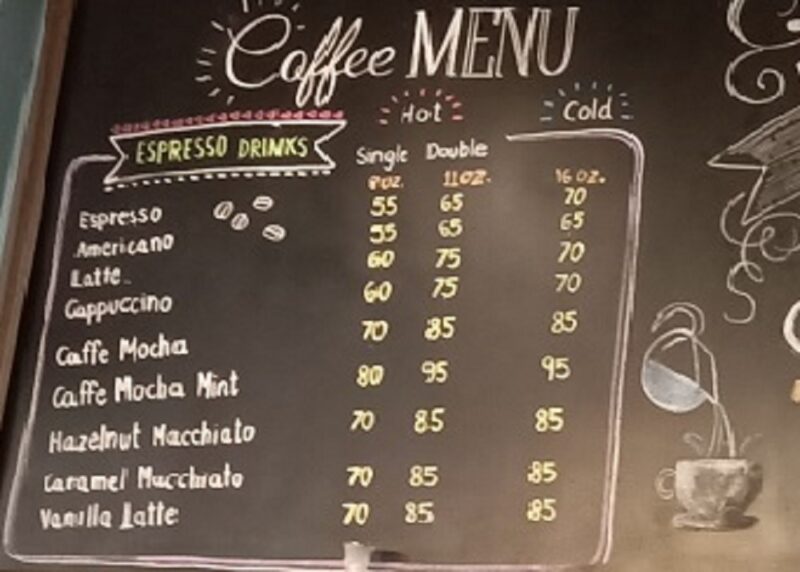 Coffee MENU
Hot Cold
ESPRESSO DRINKS Single Double
8 OZ. 11 OZ. 16 OZ.
Espresso 55 65 70
Americano 55 65 65
Latte 60 75 70
Cappuccino 60 75 70
Caffe Mocha 70 85 85
Caffe Mocha Mint 80 95 95
Hazelnut Macchiato 70 85 85
Caramel Macchiato 70 85 85
Vanilla Latte 70 85 85